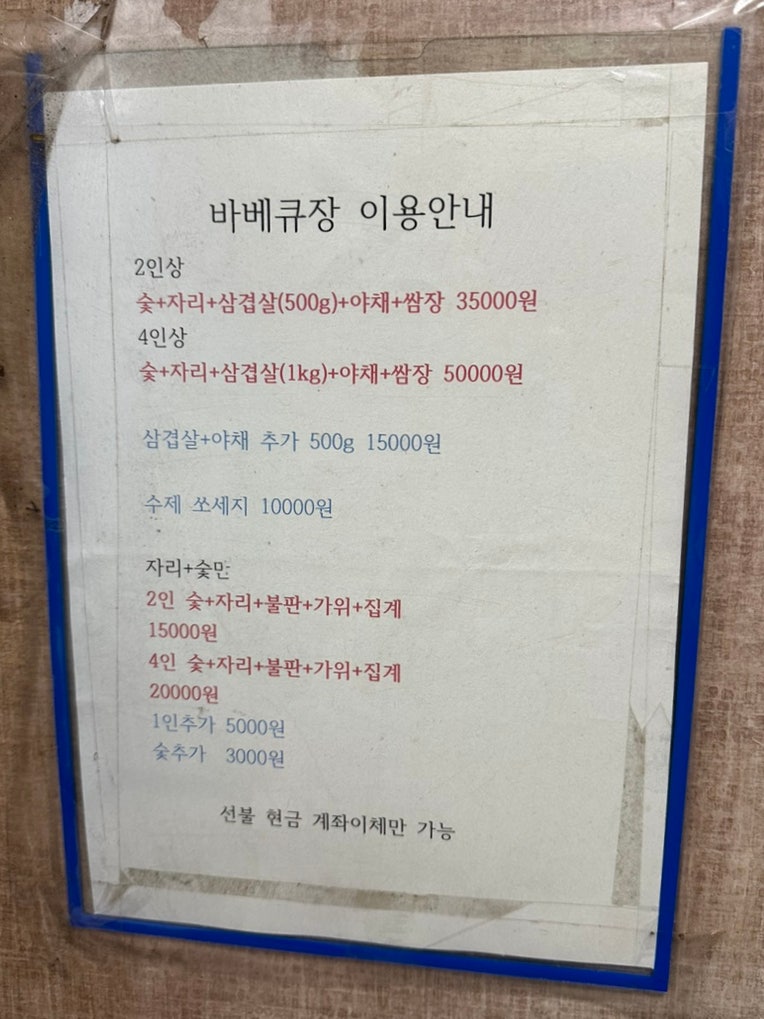 바베큐장 이용안내
2인상
숯+자리+삼겹살(500g)+야채+쌈장 35000원
4인상
숯+자리+삼겹살(1kg)+야채+쌈장 50000원
삼겹살+야채 추가 500g 15000원
수제 쏘세지 10000원
자리+숯만
2인 숯+자리+불판+가위+집계
15000원
4인 숯+자리+불판+가위+집계
20000원
1인추가 5000원
숯추가 3000원
선불 현금 계좌이체만 가능